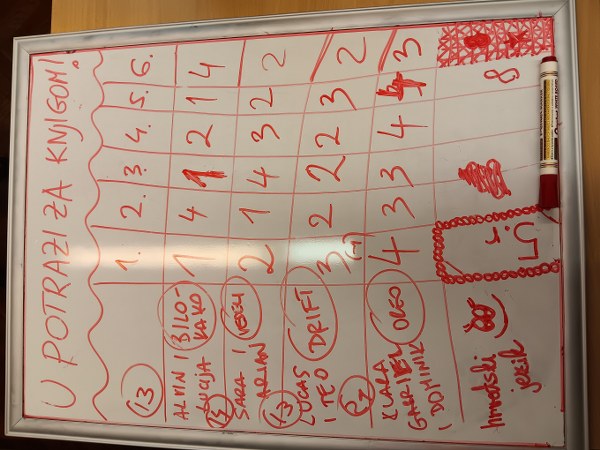 U POTRAZI ZA KNJIGOM!
13 1. 2. 3. 4. 5. 6.
ALVIN I BILO-
LUCIJA KAKO 1 4 1 2 1 4
SARA I
2 1 4 3 2 2
13
LUCAS DRIFT
I TEO 3 2 2 2 3 2
KLARA OREO
I DOMINIK 4 3 3 4 4 3
hrvatski
jezik
5.r
8